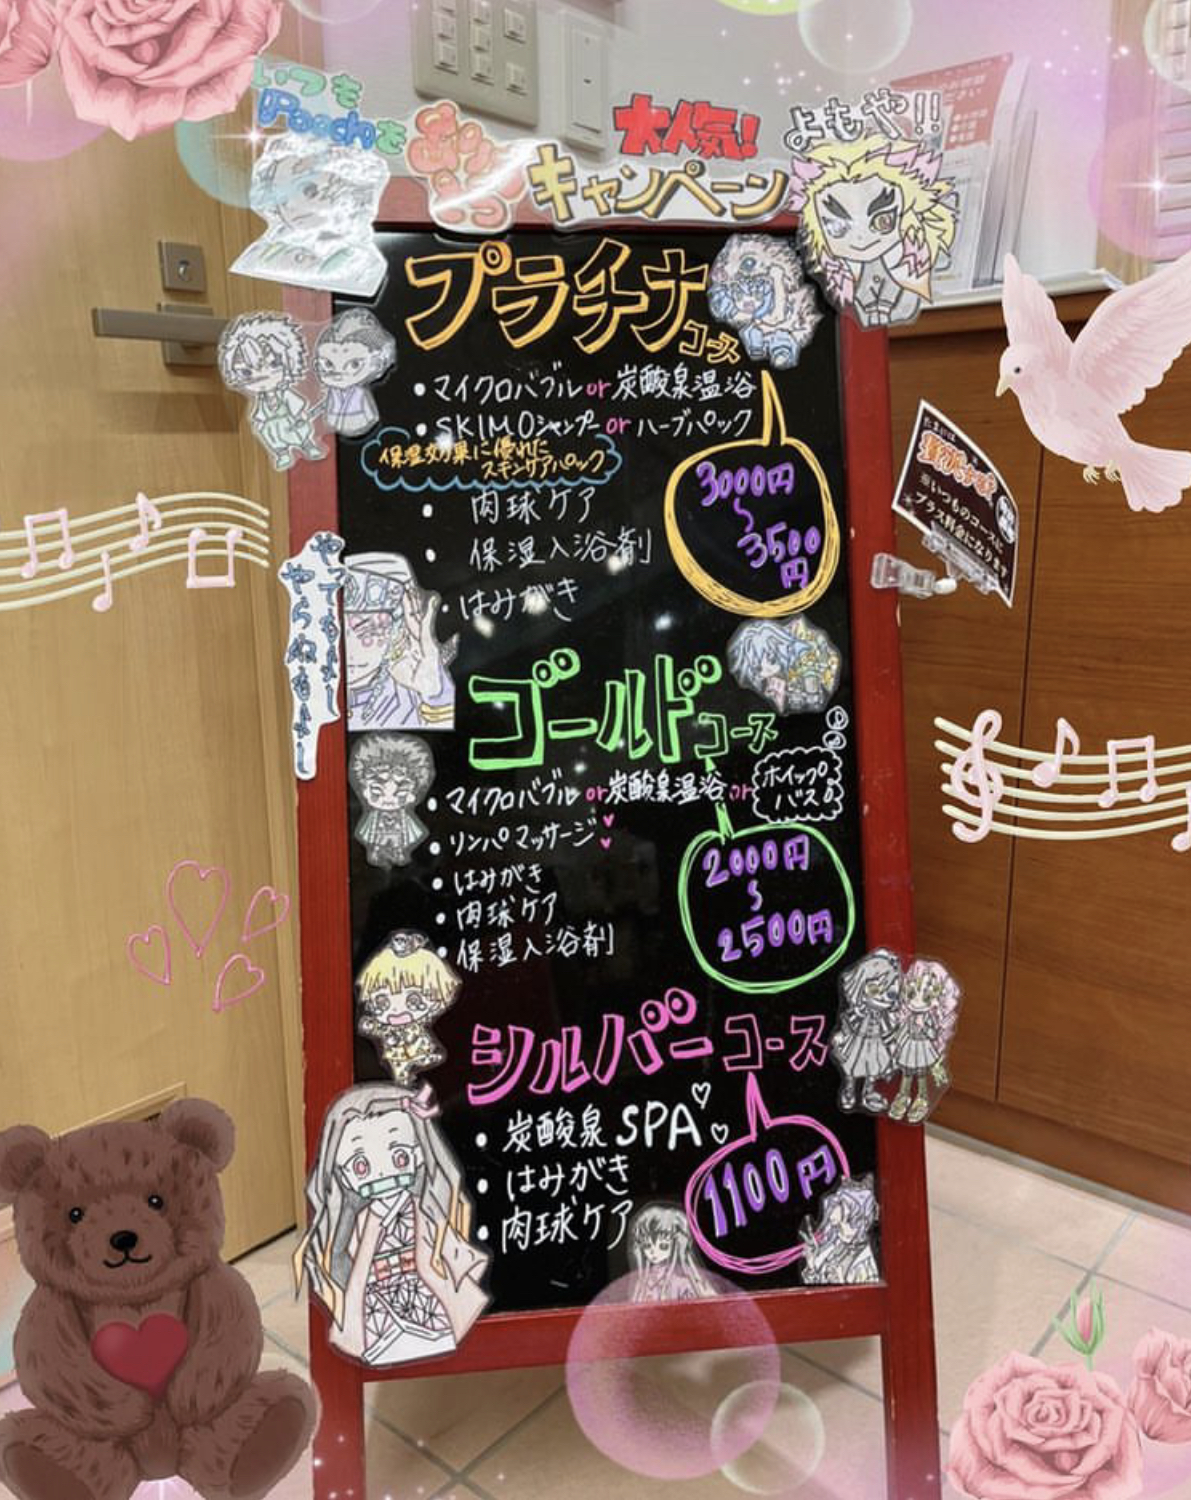 いつも
Poochを
大人気!
キャンペーン
よもや!!
プラチナコース
・マイクロバブルor炭酸泉温浴
・SKIMOシャンプーorハーブパック
保湿効果に優れた
スキンケアパック
・肉球ケア
・保湿入浴剤
・はみがき
3000円
〜
3500
円
たまには
※いつものコースに
プラス料金になります
やってもよし
やらねばよし
ゴールドコース
・マイクロバブルor炭酸泉温浴or
ホイップ
バス
・リンパマッサージ
・はみがき
・肉球ケア
・保湿入浴剤
2000円
〜
2500円
シルバーコース
・炭酸泉SPA♡♡
・はみがき
・肉球ケア
1100円